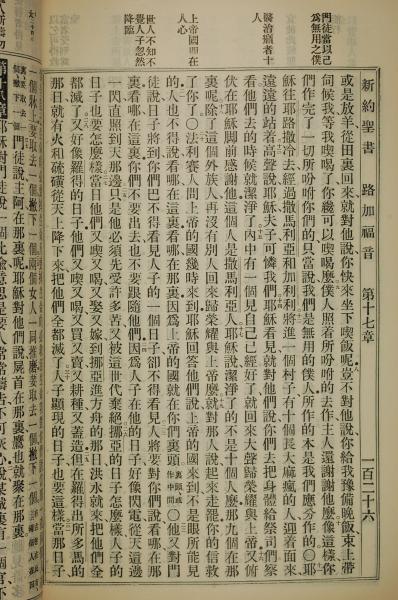 新約聖書 路加福音 第十七章 一百二十六
門徒當以己
為無用之僕
醫治癩者十
上帝國即在
人心
世人不知不
覺人子忽然
降臨
或是放羊從田裏回來就對他說你快來坐下喫飯呢豈不對他說你給我豫備晚飯束上帶
伺候我等我喫喝了你纔可以喫喝麼僕人照着所吩咐的去作主人還謝謝他麼像這樣你
們作完了一切所吩咐你們的只當說我們是無用的僕人所作的本是我們應分作的〇耶
穌往耶路撒冷去經過撒馬利亞和加利利將進一個村子有十個長大痲瘋的人迎着面來
遠遠的站着高聲說耶穌夫子可憐我們耶穌看見就對他們說你們去把身體給祭司們察
看他們去的時候就潔淨了內中有一個見自己已經好了就回來大聲歸榮耀與上帝又俯
伏在耶穌脚前感謝他這個人是撒馬利亞人耶穌說潔淨了的不是十個人麼那九個在那
裏呢除了這個外族人再沒有別人回來歸榮耀與上帝麼就對那人說起來走罷你的信救
了你了〇法利賽人問上帝的國幾時來到耶穌回答他們說上帝的國來到不是眼所能見
的人也不得說看哪在這裏看哪在那裏因為上帝的國就在你們裏頭〇他又對門
徒說日子將到你們巴不得看見人子的一個日子卻不得看見人將要對你們說看哪在這
裏看哪在這裏你們不要出去也不要跟隨他們因為人子在他的日子好像閃電從天這邊
一閃直照到天那邊只是他必須先受許多苦又被這世代棄絕挪亞的日子怎麼樣人子的
日子也要怎麼樣當日他們又喫又喝又娶又嫁到挪亞進方舟的那日洪水就來把他們全
都滅了又好像羅得的日子他們又喫又喝又買又賣又耕種又蓋造但在羅得出所多馬的
那日就有火和硫磺從天上降下來把他們全都滅了人子顯現的日子也要這樣當那日子